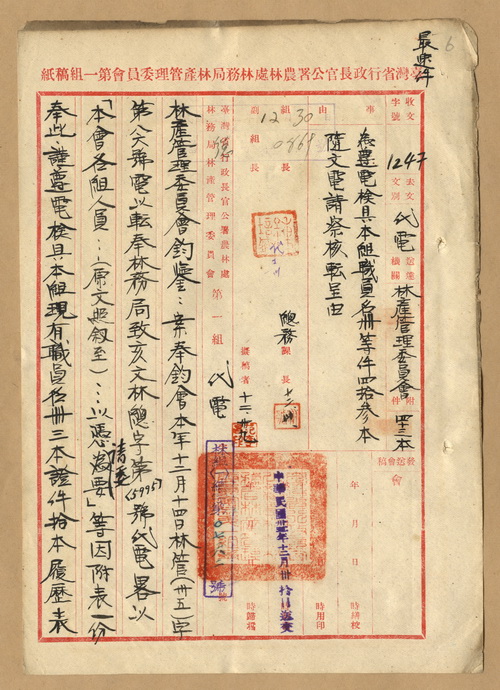 臺灣省行政長官公署農林處林務局林產管理委員會第一組稿紙
最要件
6
收文 字號
1247
去文 文別
代電
送達 機關
林產管理委員會
附件
四三本
事由
為遵電檢具本組職員名冊等件四拾參本
隨文電請察核轉呈由
組長
副組長
12 30
0868
總務課長
擬稿者
會
年 月 日
時繕校
時用印
時歸檔
中華民國卅五年十二月卅拾日送發
臺灣省行政長官公署農林處
林務局林產管理委員會
第一組
代電
林產管理委員會鈞鑒：案奉鈞會本年十二月十四日林管(卅五)字
第八六號電以轉奉林務局致亥文林總字第(5995)號代電畧以
「本會各組人員：(原文照敘至)…以憑彙要」等因附表一份
奉此，謹遵電檢具本組現有職員名冊三本證件拾本履歷表